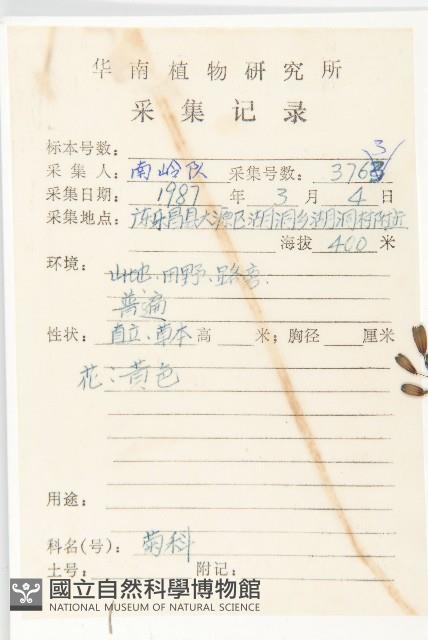 华南植物研究所
采集记录
标本号数：
采集人：南岭队 采集号数：3763
3
采集日期：1987年3月4日
采集地点：乐昌县大源区湖洞乡湖洞村附近
海拔 400 米
环境：山地、田野、路旁.
普遍
性状：直立、草本 高 米；胸径 厘米
花：黄色
用途：
科名(号)：菊科
土名： 附记：
國立自然科學博物館
NATIONAL MUSEUM OF NATURAL SCIENCE